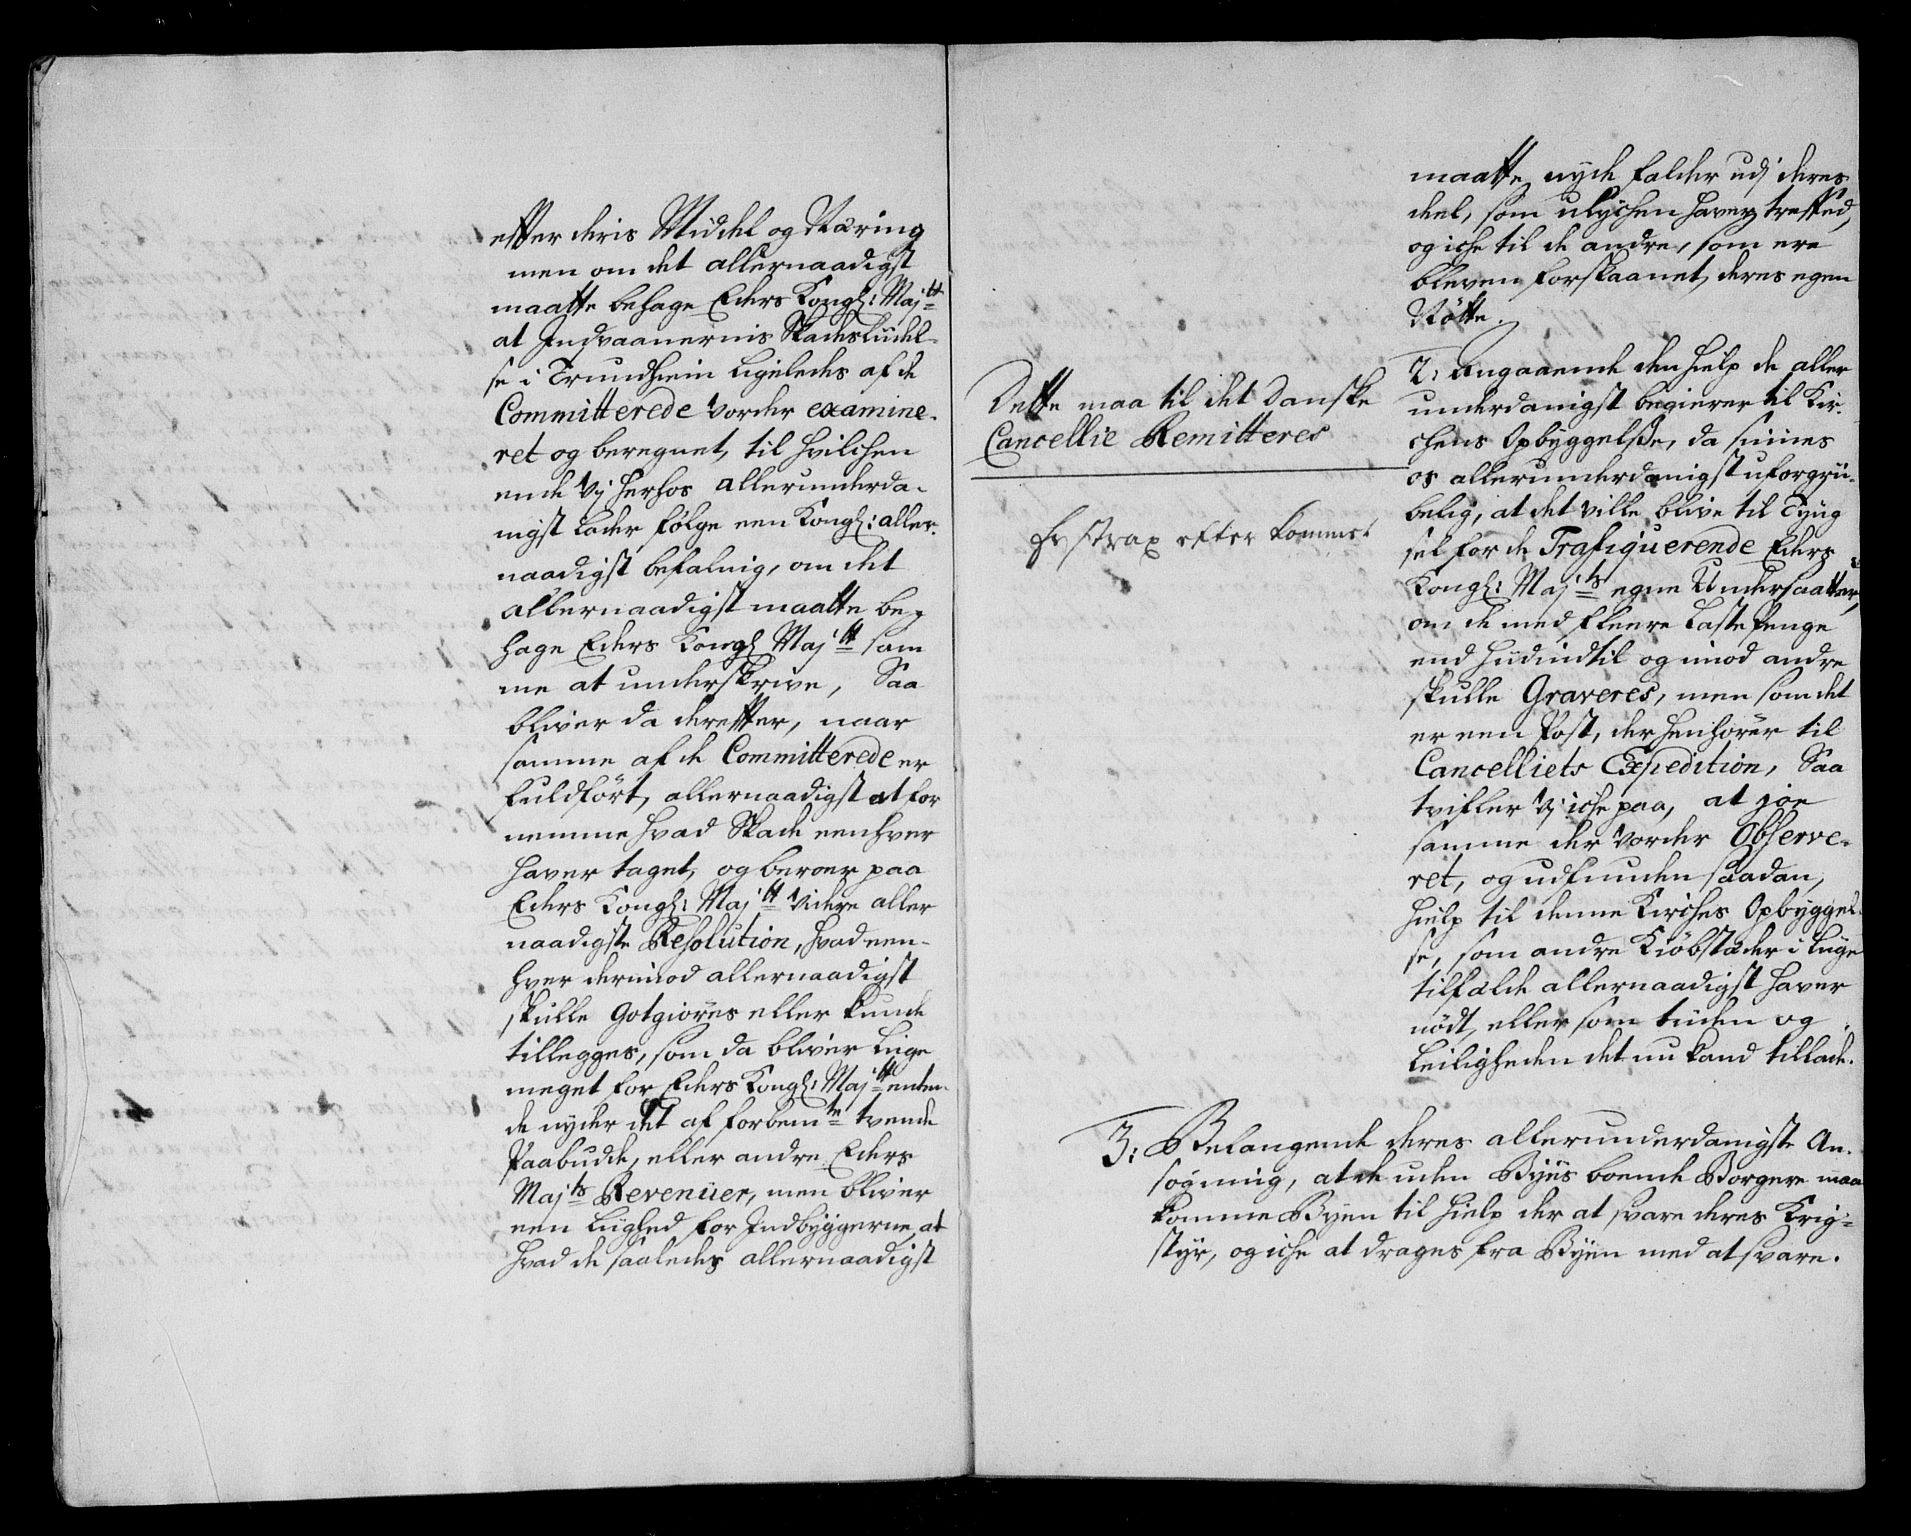 effter deris Middel og Næring
men om det allernaadigst
maatte behage Eders Kongl: Maj:tt
at Indvaanernis Skadesliidel-
se i Trundhiem ligeledes af de
Committerede vorder examine-
ret og beregnet, til hvilchen
ende Vj herhos allerunderda-
nigst lader følge een Kongl: aller-
naadigst befalnig, om det
allernaadigst maatte be-
hage Eders Kongl Maj:tt sam
me at underskrive, Saa
bliver da dereffter, naar
samme af de Committerede er
fuldført, allernaadigst at for
nemme hvad Skade eenhver
haver taget, og beroer paa
Eders Kongl: Maj:tt videre aller
naadigste Resolution, hvad een-
hver derimod allernaadigst
skulle Gotgiøres eller kunde
tillegges, som da bliver liige
meget for Eders Kongl: Maj:tt enten
de nyder det af forbem:te tvende
Paabudde, eller andre Eders
Maj:ts Revenüer, men bliver
een liighed for Indbyggerne, at
hvad de saaledes allernaadigst
maatte nyde falder udj deres
deel, som ulychen haver treffed,
og iche til de andre, som ere
bleven forskaanet, deres egen
Nøtte.
Dette maa til det danske
Cancellie Remitteres
strax efter kommet
2: Angaaende den hielp de aller
underdanigst begierer til Kir-
chens Opbyggelsse, da siines
os allerunderdanigst uforgrii-
belig, at det ville blive til Tyng
sel for de Trafiquerende Eders
Kongl: Maj:ts egne Undersaatter,
om de med fleere Lastepenge
end hiidindtil og imod andre
skulle Graveres, men som det
er een Post, der henhører til
Cancelliets Expedition, Saa
tvifler Vj iche paa, at joe
samme der vorder Observe-
ret, og udfunden saadan,
hielp til denne Kirches Opbyggel-
se, som andre Kiøbstæder i liige
tilfælde allernaadigst haver
nödt, eller som tiiden og
Leiligheden det nu kand tillade.
3: Belangende deres allerunderdanigste An-
søgning, at de uden Byens boende Borgere maa
komme Byen til hielp der at svare deres Krig-
styr, og iche at drages fra Byen med at svare.